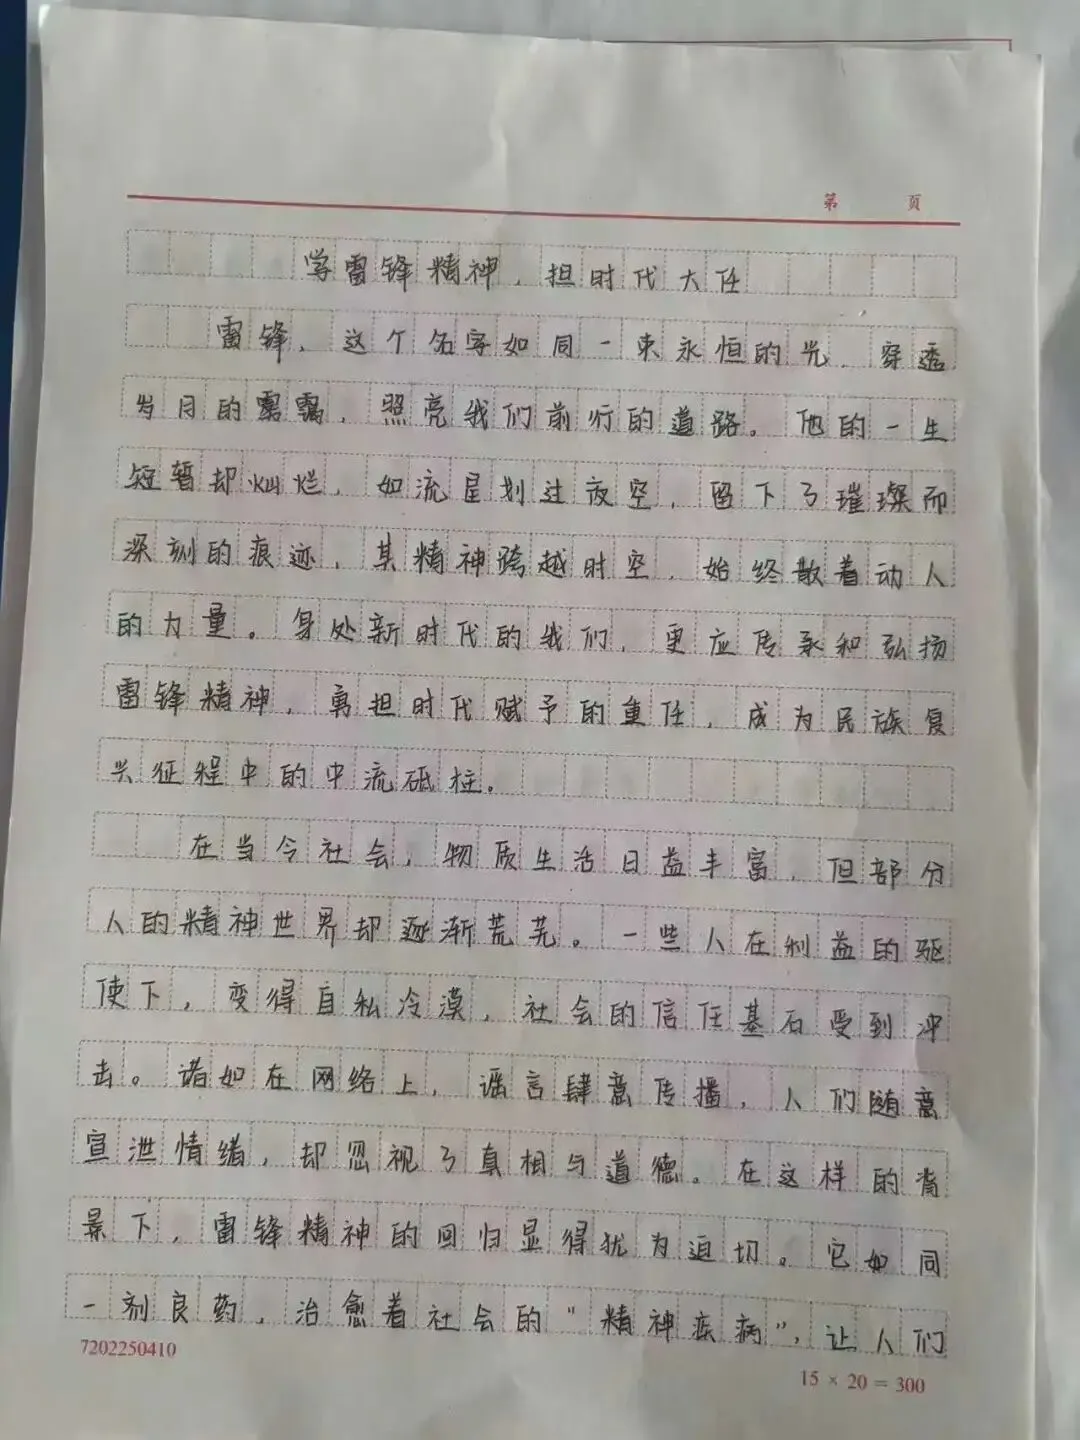 第 页
学雷锋精神，担时代大任
雷锋，这个名字如同一束永恒的光，穿透
岁月的雾霭，照亮我们前行的道路。他的一生
短暂却灿烂，如流星划过夜空，留下了璀璨而
深刻的痕迹，其精神跨越时空，始终散着动人
的力量。身处新时代的我们，更应传承和弘扬
雷锋精神，勇担时代赋予的重任，成为民族复
兴征程中的中流砥柱。
在当今社会，物质生活日益丰富，但部分
人的精神世界却逐渐荒芜。一些人在利益的驱
使下，变得自私冷漠，社会的信任基石受到冲
击。诸如在网络上，谣言肆意传播，人们随意
宣泄情绪，却忽视了真相与道德。在这样的背
景下，雷锋精神的回归显得犹为迫切。它如同
一剂良药，治愈着社会的“精神疾病”，让人们
7202250410
15 × 20 = 300